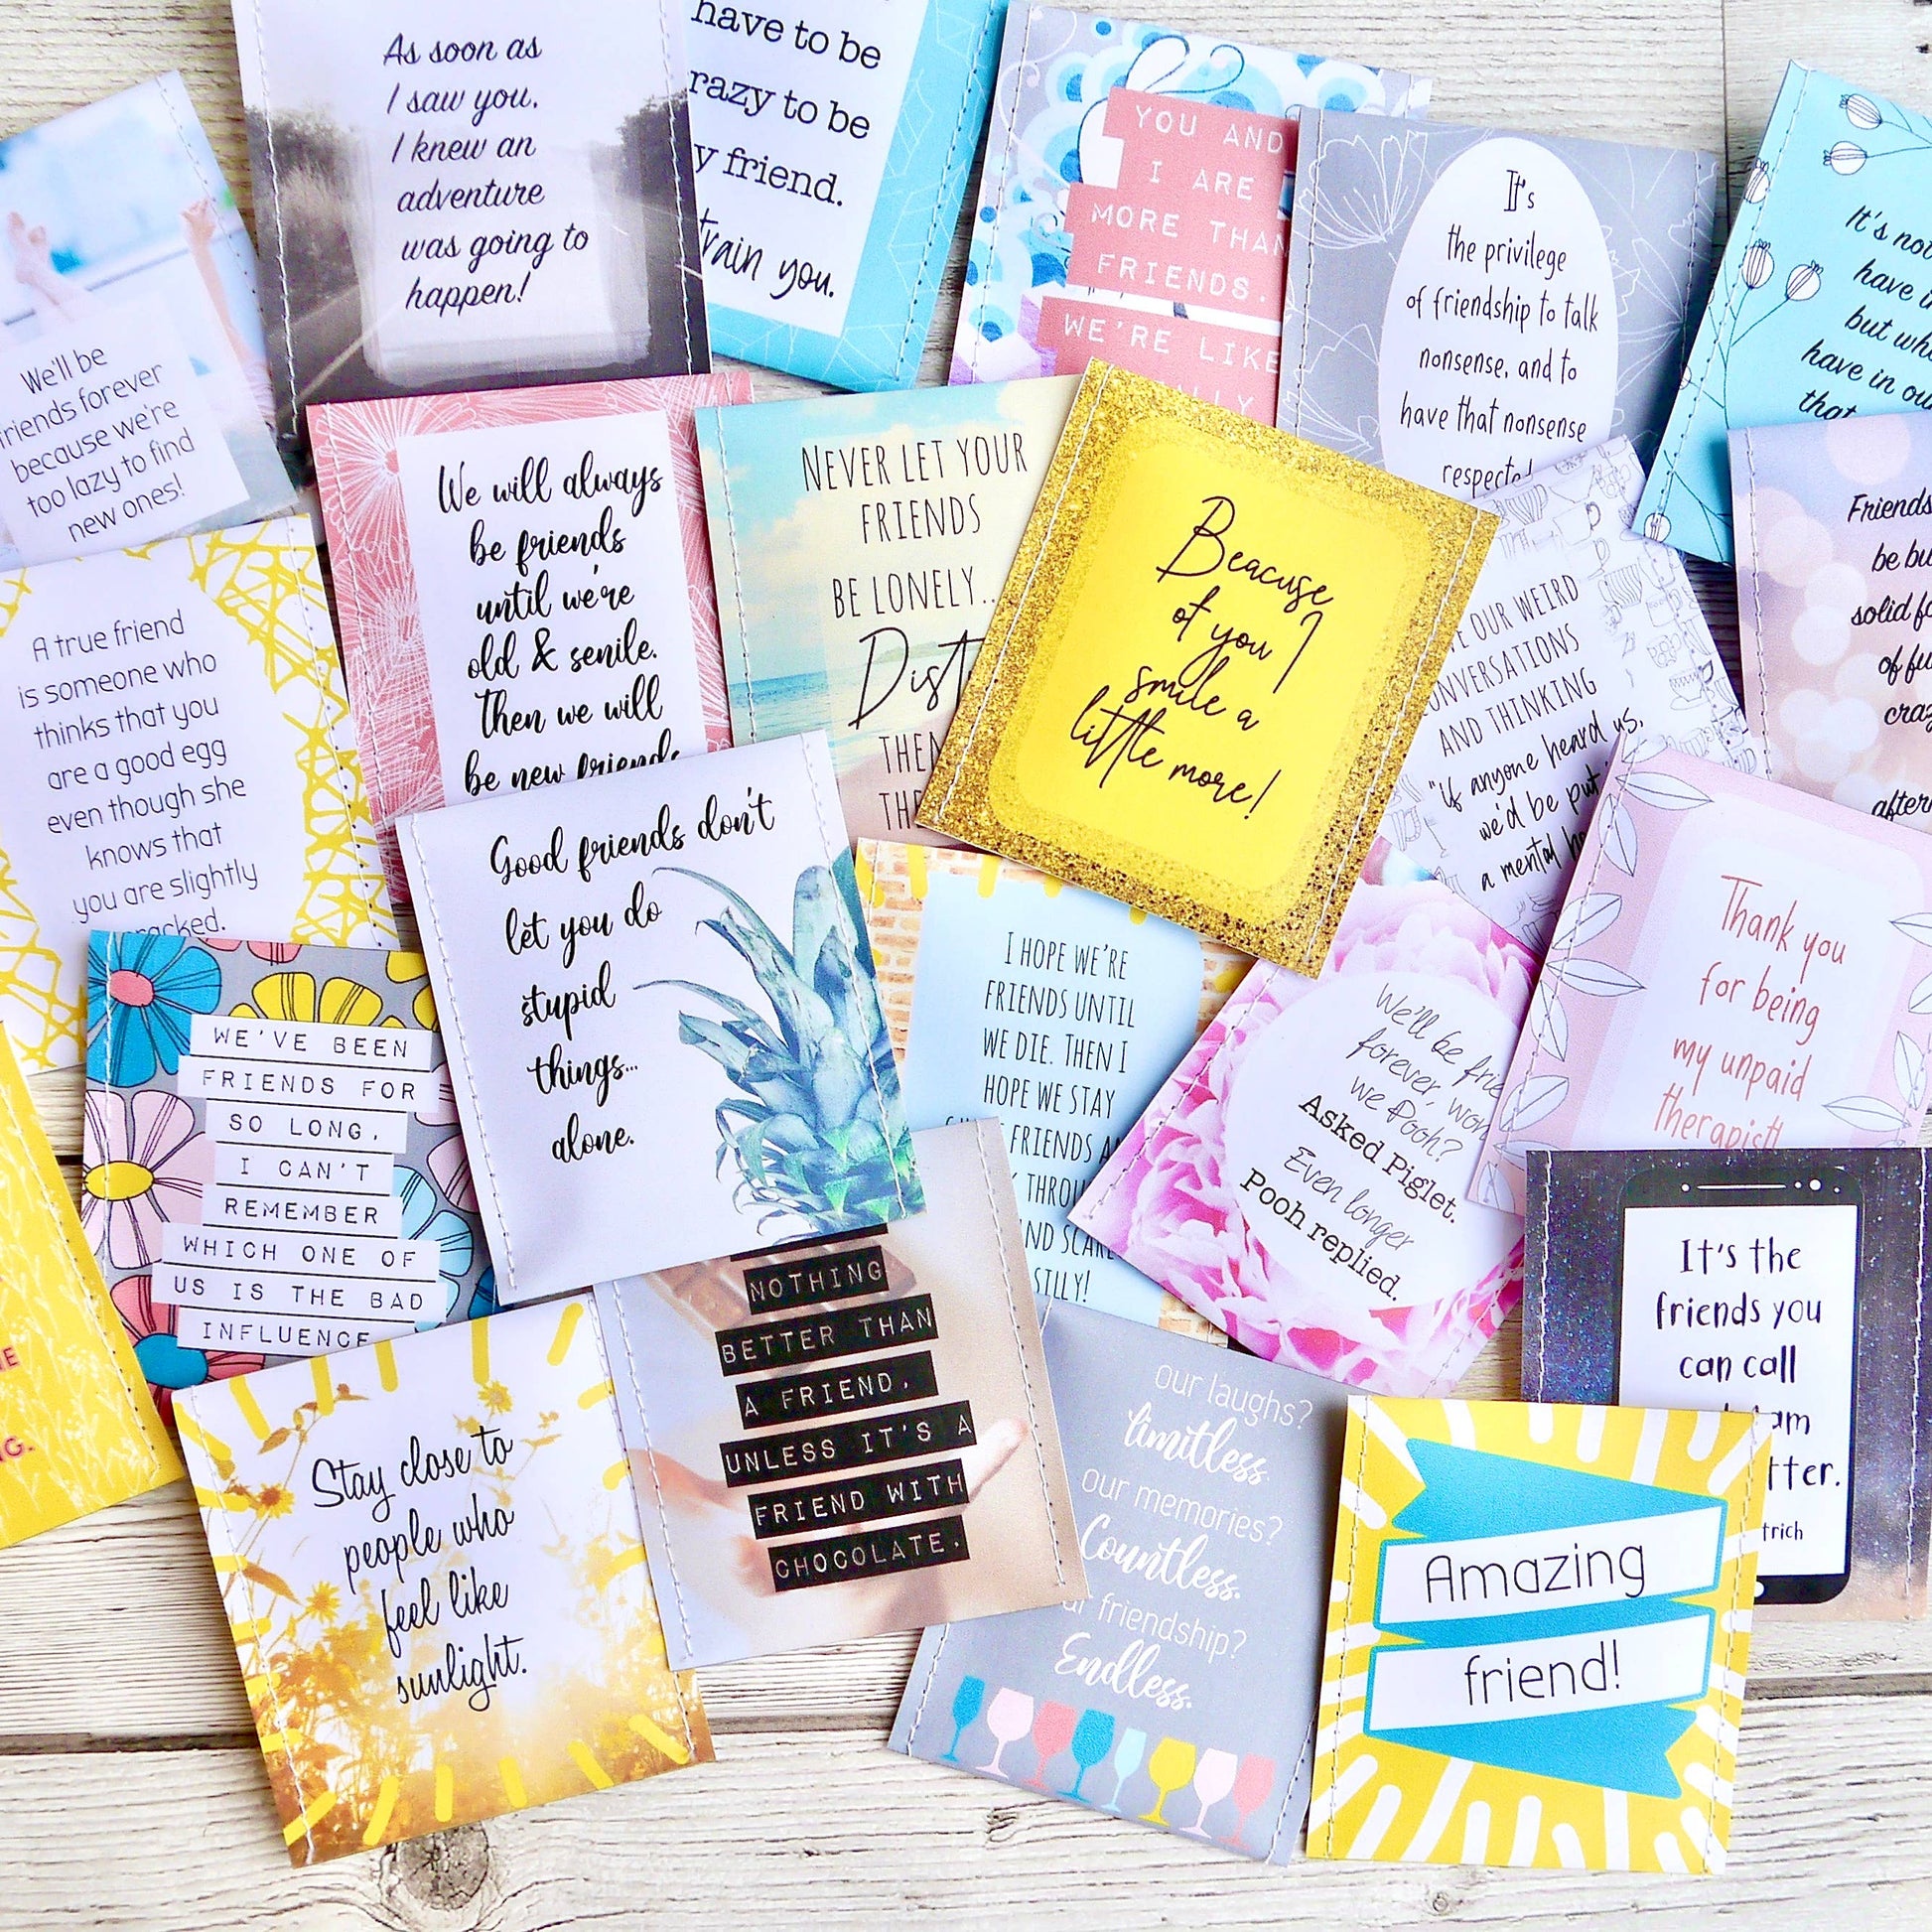 As soon as
I saw you,
I knew an
adventure
was going to
happen!
have to be
razy to be
y friend.
train you.
YOU AND
I ARE
MORE THAN
FRIENDS.
WE'RE LIKE
LLY
It's
the privilege
of friendship to talk
nonsense, and to
have that nonsense
respected
It's not
have in
but wh
have in ou
that
We'll be
friends forever
because we're
too lazy to find
new ones!
We will always
be friends
until we're
old & senile.
Then we will
be new friends
NEVER LET YOUR
FRIENDS
BE LONELY..
Dist
THEM
THE
Beacuse
of you I
smile a
little more!
OUR WEIRD
ONVERSATIONS
AND THINKING
"if anyone heard us,
we'd be put
a mental h
Friends
be bu
solid f
of fu
craz
after
A true friend
is someone who
thinks that you
are a good egg
even though she
knows that
you are slightly
cracked.
Good friends don't
let you do
stupid
things...
alone.
I HOPE WE'RE
FRIENDS UNTIL
WE DIE. THEN I
HOPE WE STAY
FRIENDS A
THROU
ND SCARE
SILLY!
We'll be frie
forever, won
we Pooh?
Asked Piglet.
Even longer
Pooh replied.
Thank you
for being
my unpaid
therapist!
WE'VE BEEN
FRIENDS FOR
SO LONG,
I CAN'T
REMEMBER
WHICH ONE OF
US IS THE BAD
INFLUENCE
NE
G.
NOTHING
BETTER THAN
A FRIEND,
UNLESS IT'S A
FRIEND WITH
CHOCOLATE.
It's the
friends you
can call
am
tter.
trich
Stay close to
people who
feel like
sunlight.
our laughs?
limitless
our memories?
Countless.
ur friendship?
Endless.
Amazing
friend!